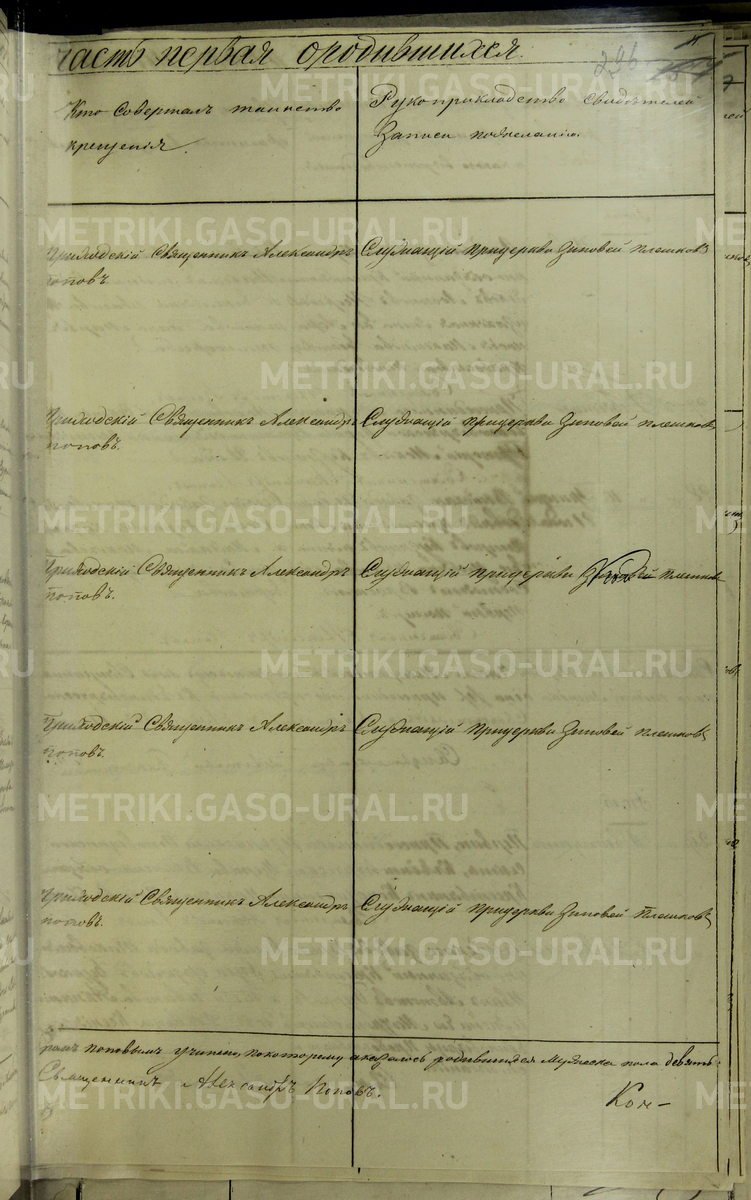 часть первая о родившихся.
Кто совершалъ таинство
крещенія.
Рукоприкладство свидѣтелей
записи по желанію.
Приходскій Священникъ Александръ
Поповъ.
Служащій при церкви Зиновей Плешковъ
Приходскій Священникъ Александръ
Поповъ.
Служащій при церкви Зиновей Плешковъ
Приходскій Священникъ Александръ
Поповъ.
Служащій при церкви Зиновей Плешковъ
Приходскій Священникъ Александръ
Поповъ.
Служащій при церкви Зиновей Плешковъ
Приходскій Священникъ Александръ
Поповъ.
Служащій при церкви Зиновей Плешковъ
Поповымъ учинено, по которому оказалось родившихся мужеска пола девять
Священникъ Александръ Поповъ.
Кол-
METRIKI.GASO-URAL.RU